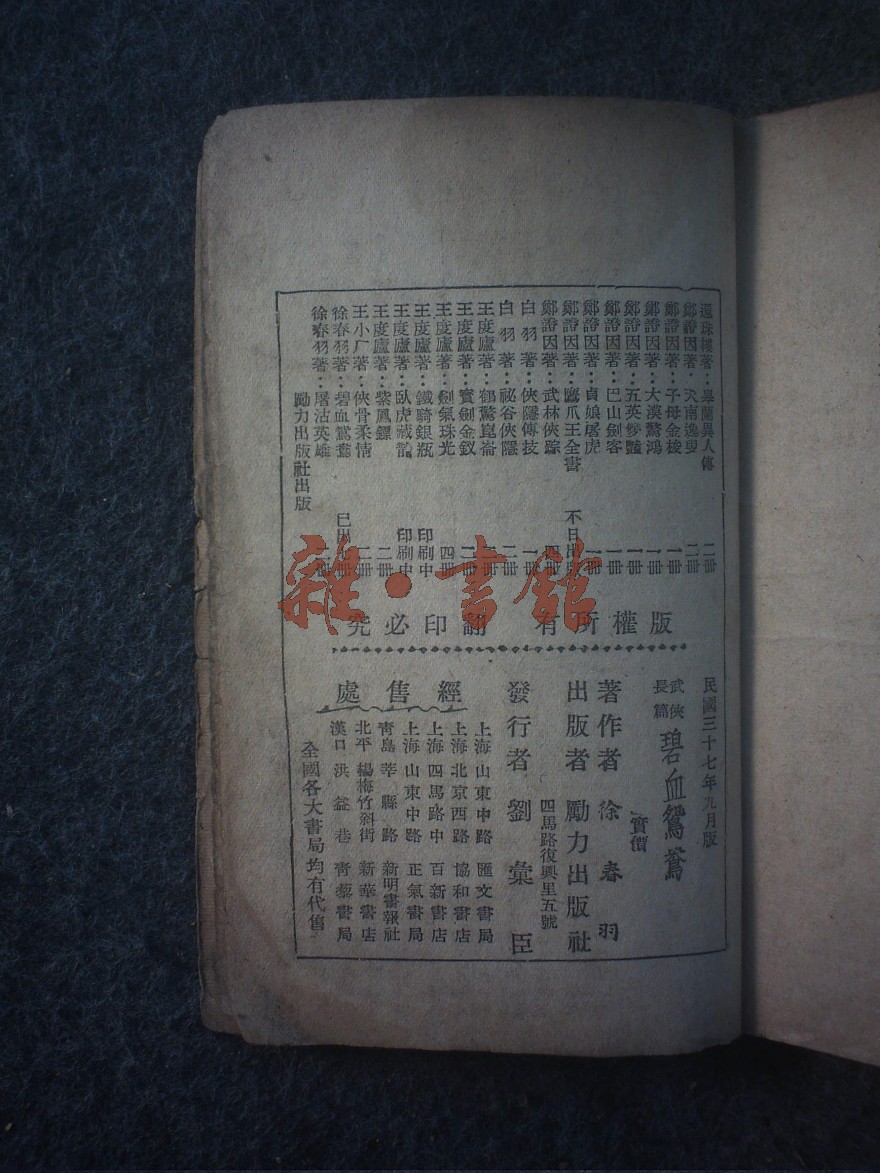 還珠樓著：皋蘭異人傳 二冊
鄭證因著：天南逸叟 二冊
鄭證因著：子母金梭 一冊
鄭證因著：大漠驚鴻 一冊
鄭證因著：五英雙艷 一冊
鄭證因著：巴山劍客 一冊
鄭證因著：貞娘屠虎 一冊
鄭證因著：鷹爪王全書 不日出版
鄭證因著：武林俠踪 四冊
白羽著：俠隱傳技 一冊
白羽著：祕谷俠隱 二冊
王度廬著：鶴驚崑崙 二冊
王度廬著：寶劍金釵 二冊
王度廬著：劍氣珠光 四冊
王度廬著：鐵騎銀瓶 印刷中
王度廬著：臥虎藏龍 印刷中
王度廬著：紫鳳鏢 二冊
王小厂著：俠骨柔情 二冊
徐春羽著：碧血鴛鴦 已出 冊
徐春羽著：屠沽英雄 冊
勵力出版社出版
版權所有 翻印必究
民國三十七年九月版
武俠長篇 碧血鴛鴦
實價
著作者 徐春羽
出版者 勵力出版社
四馬路復興里五號
發行者 劉彙臣
經售處
上海山東中路 匯文書局
上海北京西路 協和書店
上海四馬路中 百新書店
上海山東中路 正氣書局
青島莘縣路 新明書報社
北平楊梅竹斜街 新華書店
漢口洪益巷 青藜書局
全國各大書局均有代售
雜·書館